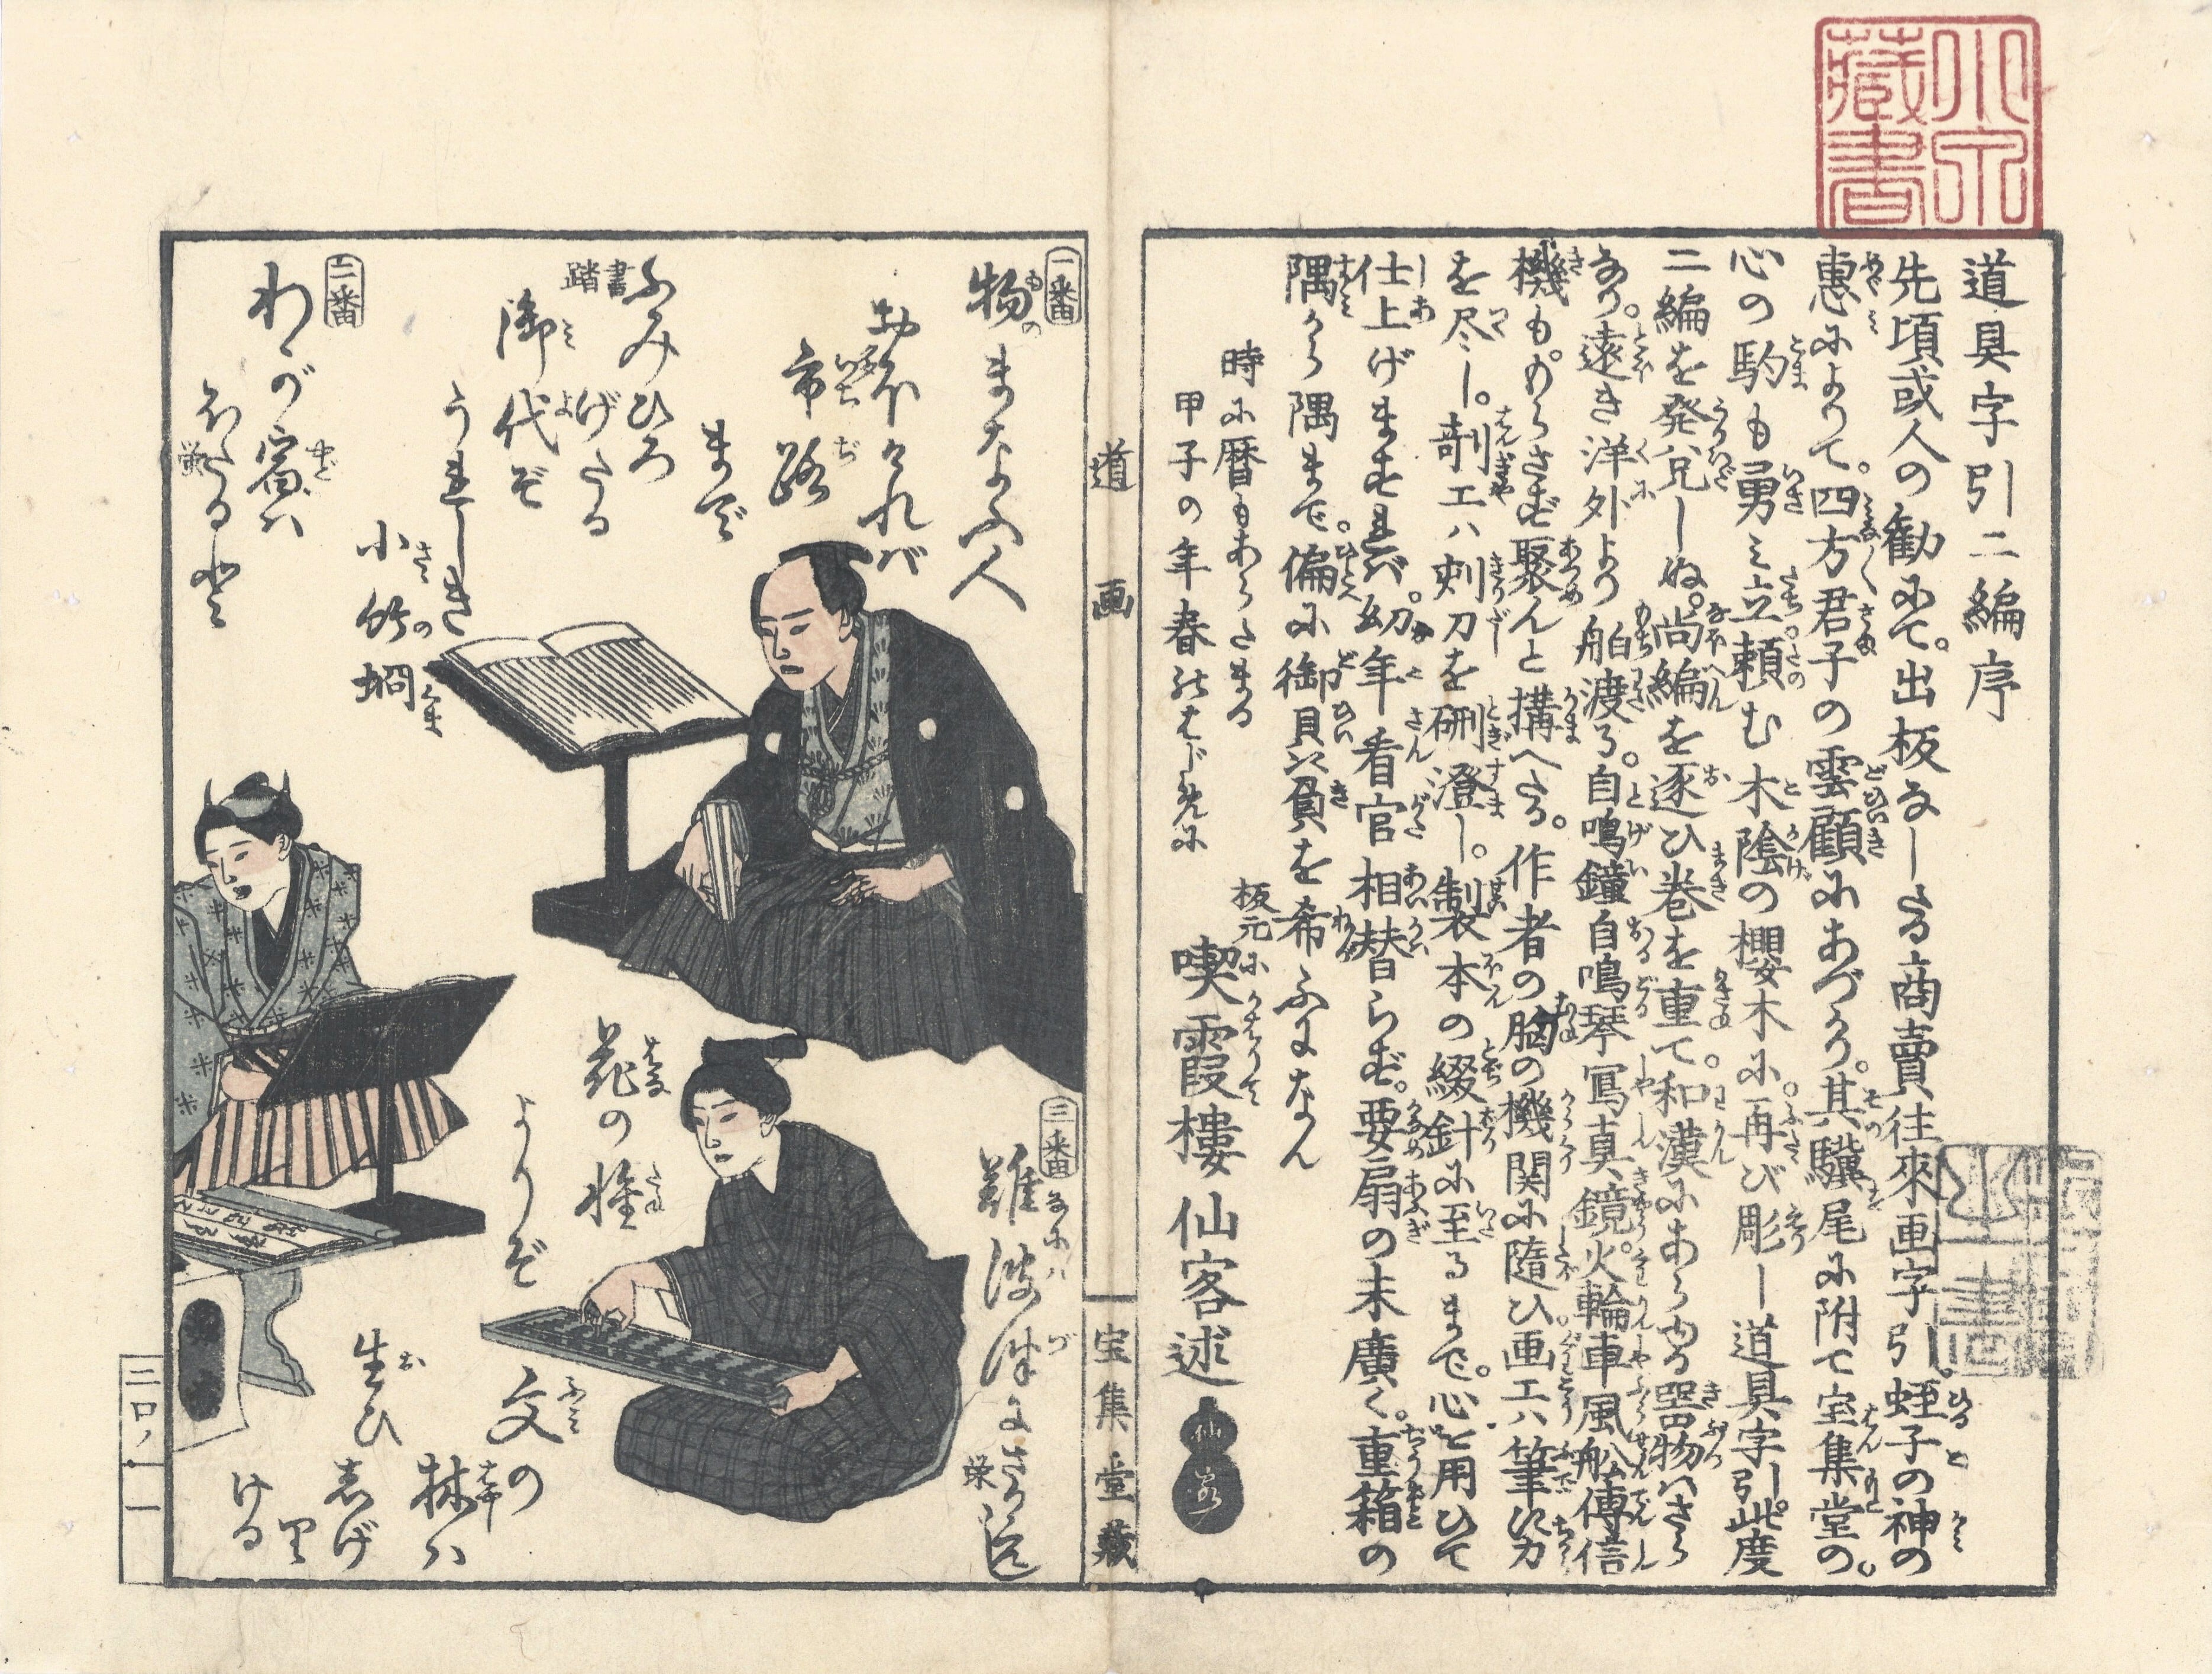 道具字引二編序
先頃或人の勧にて。出板なしたる商賣往來画字引。蛭子の神の
惠によりて。四方君子の雲顧にあづかり。其驥尾に附て宝集堂の。
心の駒も勇み立。頼む木陰の櫻木に。再び彫し道具字引。此度
二編を発兌しぬ。尚編を逐ひ巻を重て。和漢にあらゆる器物はさら
なり。遠き洋外より舶渡る。自鳴鐘自鳴琴寫真鏡。火輪車風舩傳信
機も。のらさず聚んと搆へたる。作者の胸の機関に隨ひ。画工ハ筆に力
を尽し。剞工ハ刺刀を研澄し。製本の綴針に至るまで。心を用ひて
仕上げますれバ。幼年看官相替らず。要扇の末廣く。重箱の
隅から隅まで。偏に御贔負を希ふになん
時に暦もあらたまる
甲子の年春のはじめに
板元に
喫霞樓仙客述
仙客
道画
宝集堂蔵
一番
物まなふ人
市路
まで
ふみひろ
げたる
書
踏
御代ぞ
うれしき
小竹垣
二番
わが宿ハ
ほたるも
螢
三番
難波津に
さく
花の種
よりぞ
文の
林ハ
生ひ
しげ
り
ける
三ロノ一
小泉藏書